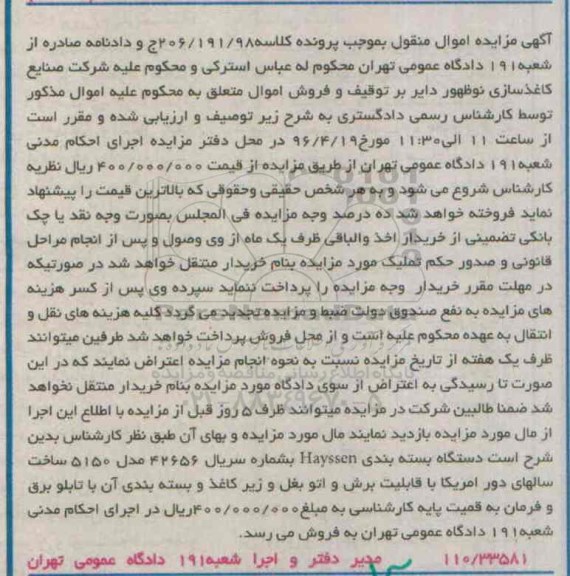 آگهی مزایده اموال منقول بموجب پرونده کلاسه۲۰۶/۱۹۱/۹۸ج و دادنامه صادره از
شعبه۱۹۱ دادگاه عمومی تهران محکوم له عباس استرکی و محکوم علیه شرکت صنایع
کاغذسازی نوظهور دایر بر توقیف و فروش اموال متعلق به محکوم علیه اموال مذکور
توسط کارشناس رسمی دادگستری به شرح زیر توصیف و ارزیابی شده و مقرر است
از ساعت ۱۱ الی۱۱:۳۰ مورخ۹۶/۴/۱۹ در محل دفتر مزایده اجرای احکام مدنی
شعبه۱۹۱ دادگاه عمومی تهران از طریق مزایده از قیمت ۴۰۰/۰۰۰/۰۰۰ ریال نظریه
کارشناس شروع می شود و به هر شخص حقیقی وحقوقی که بالاترین قیمت را پیشنهاد
نماید فروخته خواهد شد ده درصد وجه مزایده فی المجلس بصورت وجه نقد یا چک
بانکی تضمینی از خریدار اخذ والباقی ظرف یک ماه از وی وصول و پس از انجام مراحل
قانونی و صدور حکم تملیک مورد مزایده بنام خریدار منتقل خواهد شد در صورتیکه
در مهلت مقرر خریدار وجه مزایده را پرداخت ننماید سپرده وی پس از کسر هزینه
های مزایده به نفع صندوق دولت ضبط و مزایده تجدید می گردد کلیه هزینه های نقل و
انتقال به عهده محکوم علیه است و از محل فروش پرداخت خواهد شد طرفین میتوانند
ظرف یک هفته از تاریخ مزایده نسبت به نحوه انجام مزایده اعتراض نمایند که در این
صورت تا رسیدگی به اعتراض از سوی دادگاه مورد مزایده بنام خریدار منتقل نخواهد
شد ضمنا طالبین شرکت در مزایده میتوانند ظرف ۵ روز قبل از مزایده با اطلاع این اجرا
از مال مورد مزایده بازدید نمایند مال مورد مزایده و بهای آن طبق نظر کارشناس بدین
شرح است دستگاه بسته بندی Hayssen بشماره سریال ۴۲۶۵۶ مدل ۵۱۵۰ ساخت
سالهای دور امریکا با قابلیت برش و اتو بغل و زیر کاغذ و بسته بندی آن با تابلو برق
و فرمان به قمیت پایه کارشناسی به مبلغ۴۰۰/۰۰۰/۰۰۰ریال در اجرای احکام مدنی
شعبه۱۹۱ دادگاه عمومی تهران به فروش می رسد.
۱۱۰/۳۳۵۸۱ مدیر دفتر و اجرا شعبه۱۹۱ دادگاه عمومی تهران